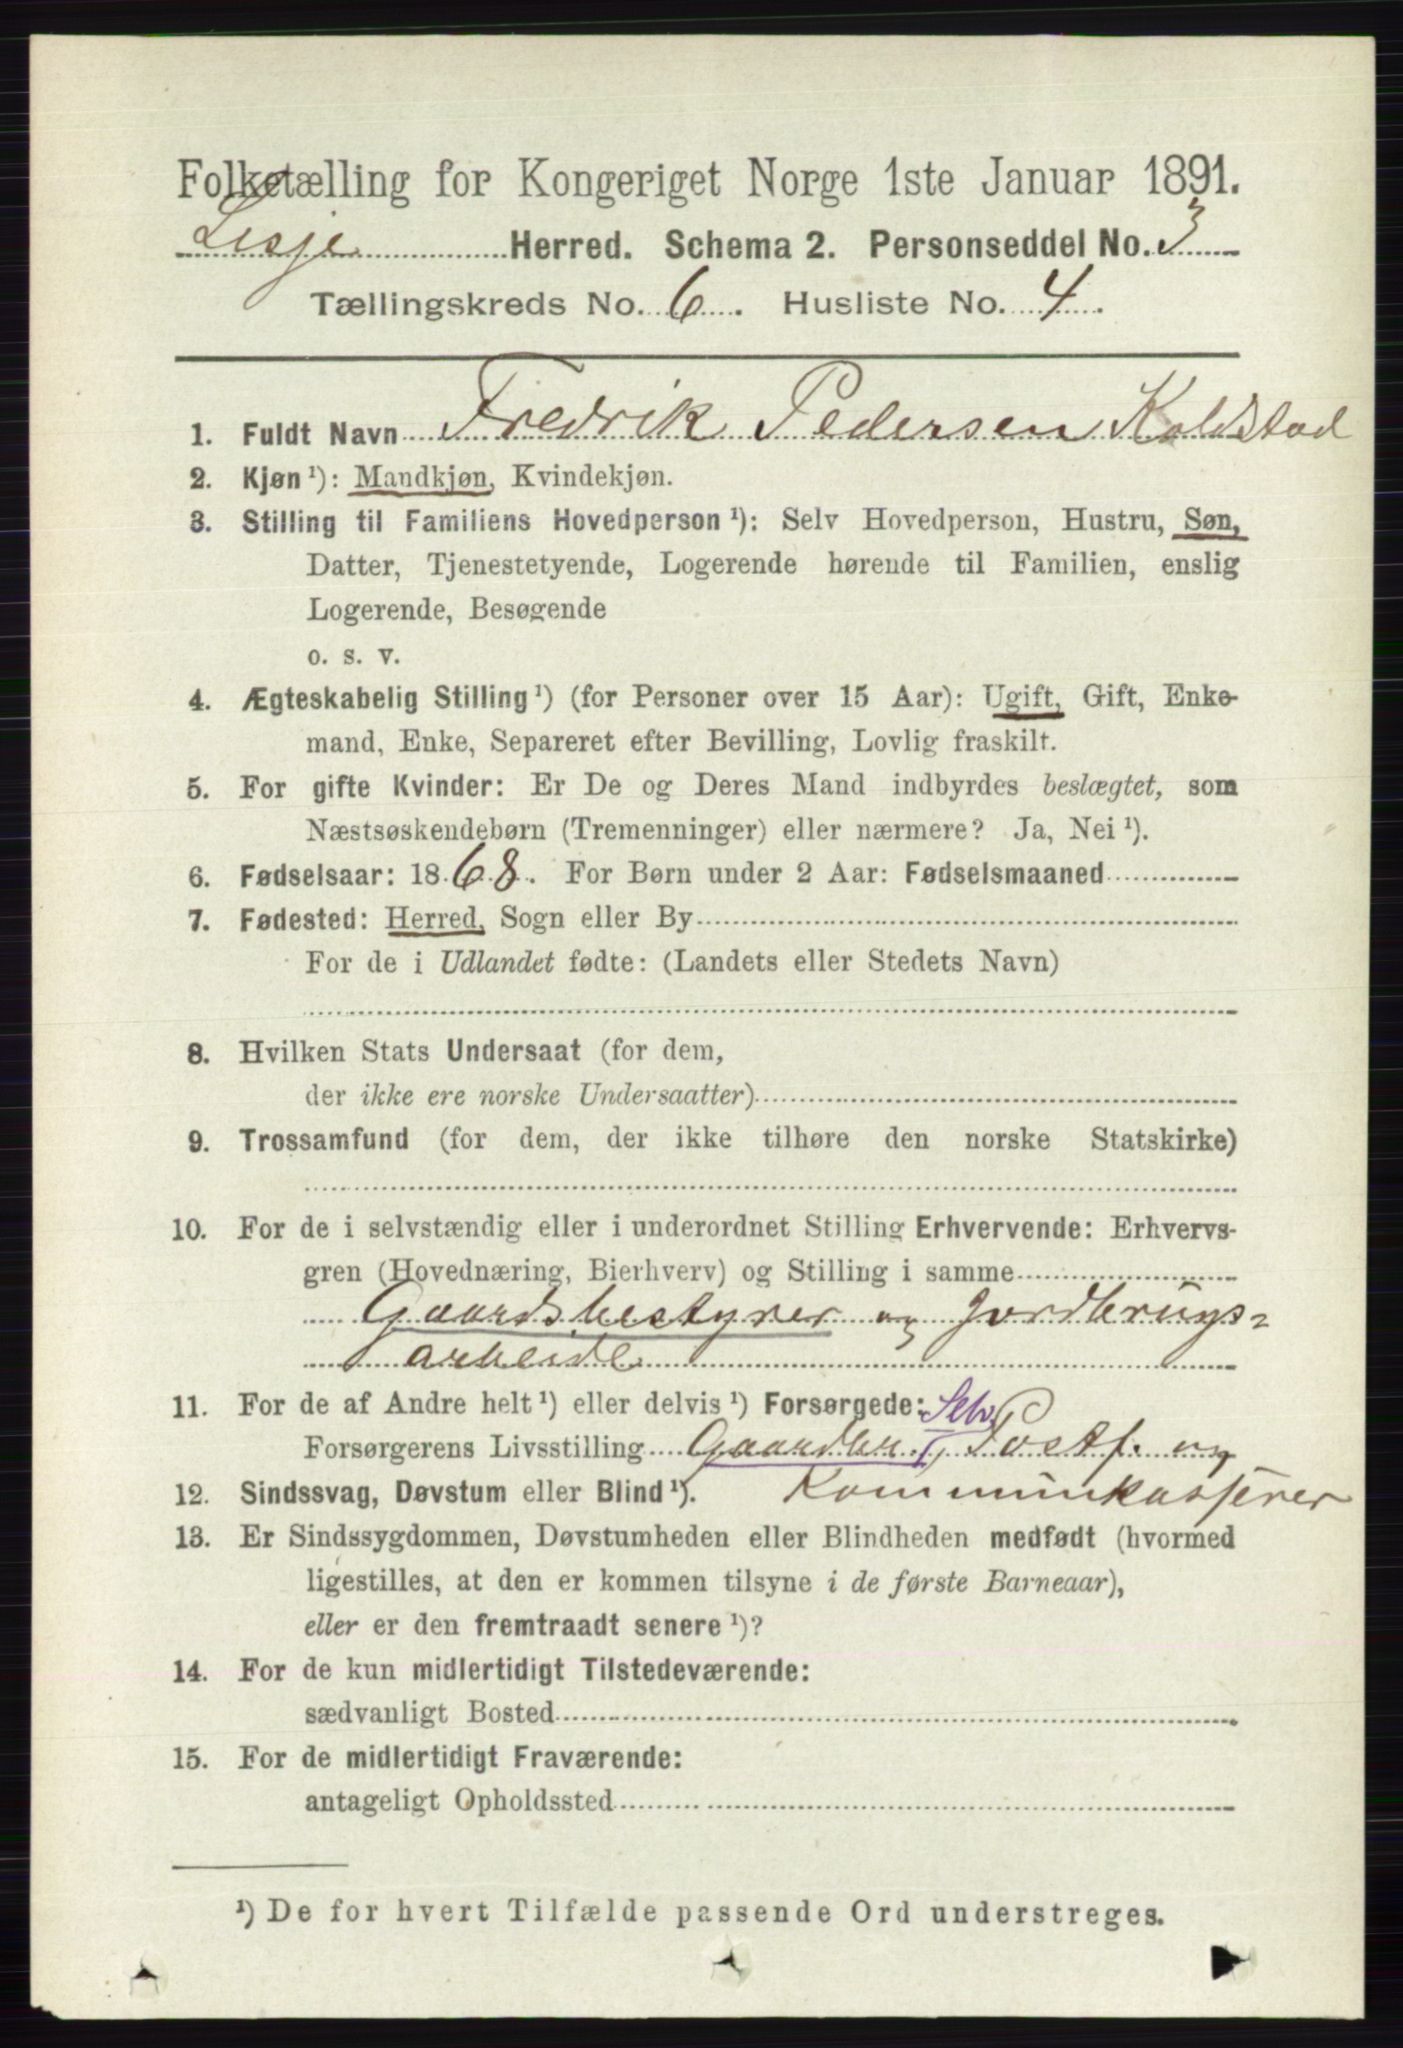 Folketælling for Kongeriget Norge 1ste Januar 1891.
Lesje Herred. Schema 2. Personseddel No. 3
Tællingskreds No. 6. Husliste No. 4.
1. Fuldt Navn Fredrik Pedersen Koldstad
2. Kjøn¹): Mandkjøn, Kvindekjøn.
3. Stilling til Familiens Hovedperson¹): Selv Hovedperson, Hustru, Søn,
Datter, Tjenestetyende, Logerende hørende til Familien, enslig
Logerende, Besøgende
o. s. v.
4. Ægteskabelig Stilling¹) (for Personer over 15 Aar): Ugift, Gift, Enke-
mand, Enke, Separeret efter Bevilling, Lovlig fraskilt.
5. For gifte Kvinder: Er De og Deres Mand indbyrdes beslægtet, som
Næstsøskendebørn (Tremenninger) eller nærmere? Ja, Nei¹).
6. Fødselsaar: 1868. For Børn under 2 Aar: Fødselsmaaned
7. Fødested: Herred, Sogn eller By
For de i Udlandet fødte: (Landets eller Stedets Navn)
8. Hvilken Stats Undersaat (for dem,
der ikke ere norske Undersaatter)
9. Trossamfund (for dem, der ikke tilhøre den norske Statskirke)
10. For de i selvstændig eller i underordnet Stilling Erhvervende: Erhvervs-
gren (Hovednæring, Bierhverv) og Stilling i samme
Gaardsbestyrer og Jordbrugs=
arbeide
11. For de af Andre helt¹) eller delvis¹) Forsørgede: Selv.
Forsørgerens Livsstilling Gaardbr., Postf. og
12. Sindssvag, Døvstum eller Blind¹). Kommunkasserer
13. Er Sindssygdommen, Døvstumheden eller Blindheden medfødt (hvormed
ligestilles, at den er kommen tilsyne i de første Barneaar),
eller er den fremtraadt senere¹)?
14. For de kun midlertidigt Tilstedeværende:
sædvanligt Bosted
15. For de midlertidigt Fraværende:
antageligt Opholdssted
¹) De for hvert Tilfælde passende Ord understreges.